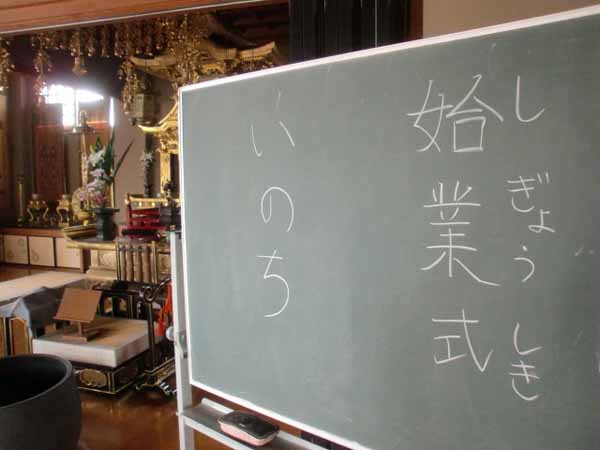 しぎょうしき
始業式
いのち